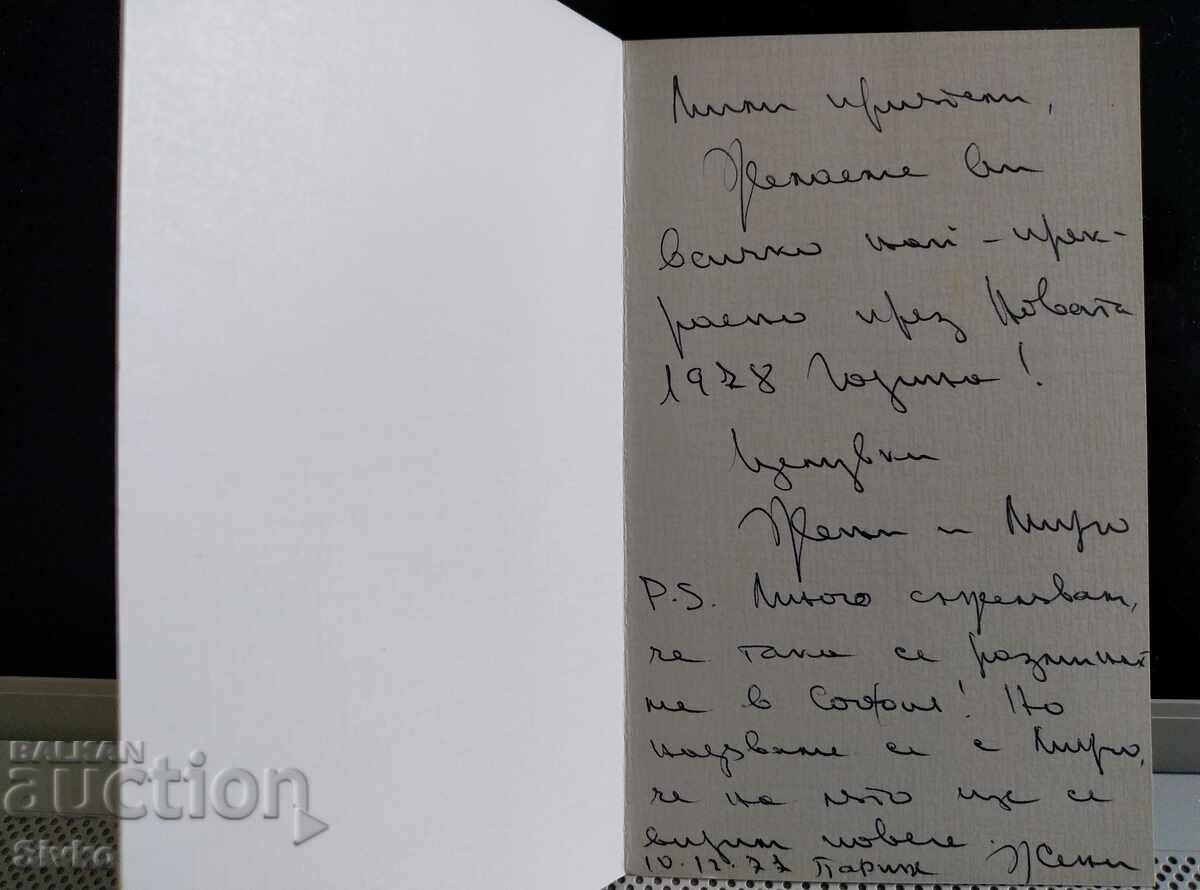 Мили приятели,
Желаеме ви
всичко най-прек-
расно през Новата
1978 Година!
Целувки
Жени и Миро
P.S. Много съжелявам,
че така се разминах
ме в София! Но
надяваме се с Миро,
че на лято ще се
видим повече.
10.12.77 Париж Жени
BALKAN
auction
Sivko